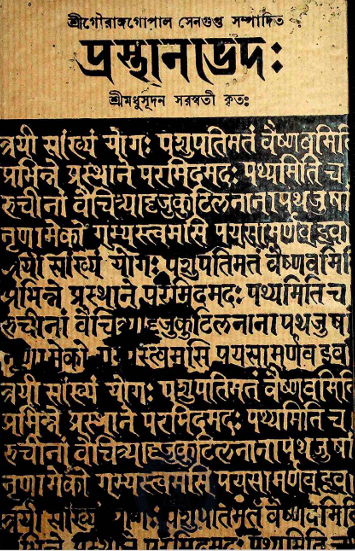 শ্রীগৌরাঙ্গগোপাল সেনগুপ্ত সম্পাদিত
প্রস্থানভেদঃ
শ্রীমধুসূদন সরস্বতী কৃতঃ
त्रयी सांख्यं योगः पशुपतिमतं वैष्णवमिति
प्रभिन्ने प्रस्थाने परमिदमदः पथ्यमिति च
रुचीनां वैचित्र्यादृजुकुटिलनानापथजुषां
नृणामेको गम्यस्त्वमसि पयसामर्णव इवा
त्रयी सांख्यं योगः पशुपतिमतं वैष्णवमिति
प्रभिन्ने प्रस्थाने परमिदमदः पथ्यमिति च
रुचीनां वैचित्र्यादृजुकुटिलनानापथजुषां
नृणामेको गम्यस्त्वमसि पयसामर्णव इवा
त्रयी सांख्यं योगः पशुपतिमतं वैष्णवमिति
प्रभिन्ने प्रस्थाने परमिदमदः पथ्यमिति च
रुचीनां वैचित्र्यादृजुकुटिलनानापथजुषां
नृणामेको गम्यस्त्वमसि पयसामर्णव इवा
त्रयी सांख्यं योगः पशुपतिमतं वैष्णवमिति
प्रभिन्ने प्रस्थाने परमिदमदः पथ्यमिति च